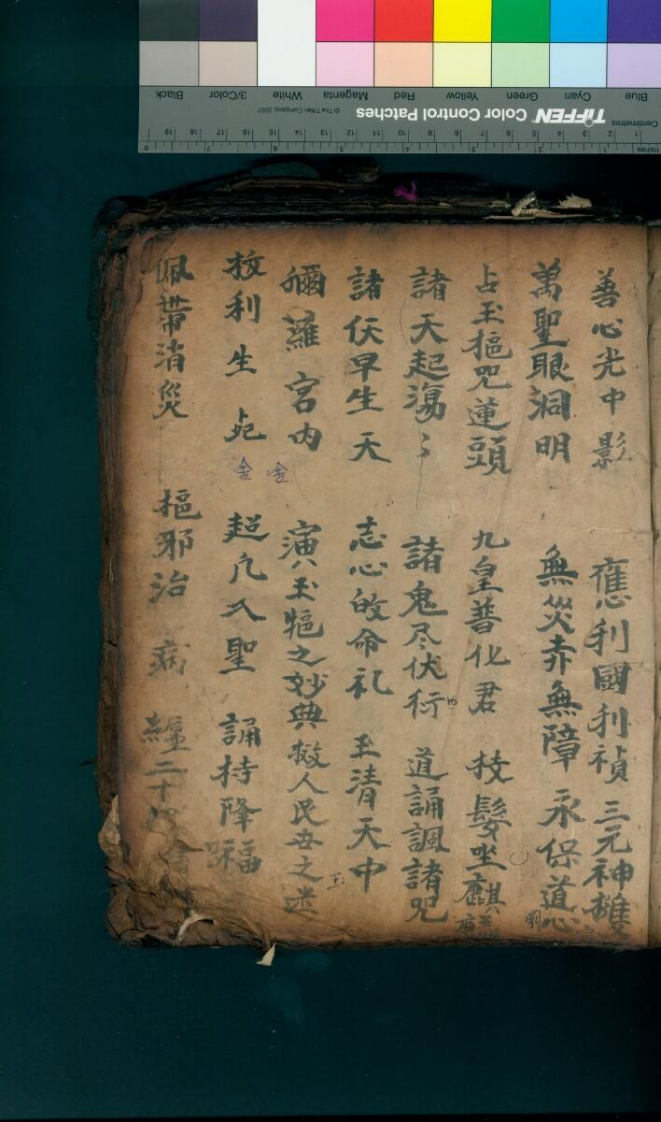 善心光中影 應利國利禎 三元神雄
萬聖眼洞明 無災亦無障 永保道心
占玉樞咒蓮頭 九皇普化君 披髮坐麒
諸天起蕩〻 諸鬼尽伏衍 道誦諷諸咒
諸仸早生天 志心皈命礼 玉清天中
彌羅宮內 演八玉樞之妙典 救人民之迷
救利生 超凡入聖 誦持降福
佩带消災 樞邪治病 纏二十
TIFFEN Color Control Patches
© The Tiffen Company, 2007
Blue Cyan Green Yellow Red Magenta White 3/Color Black
Centimetres
Inches